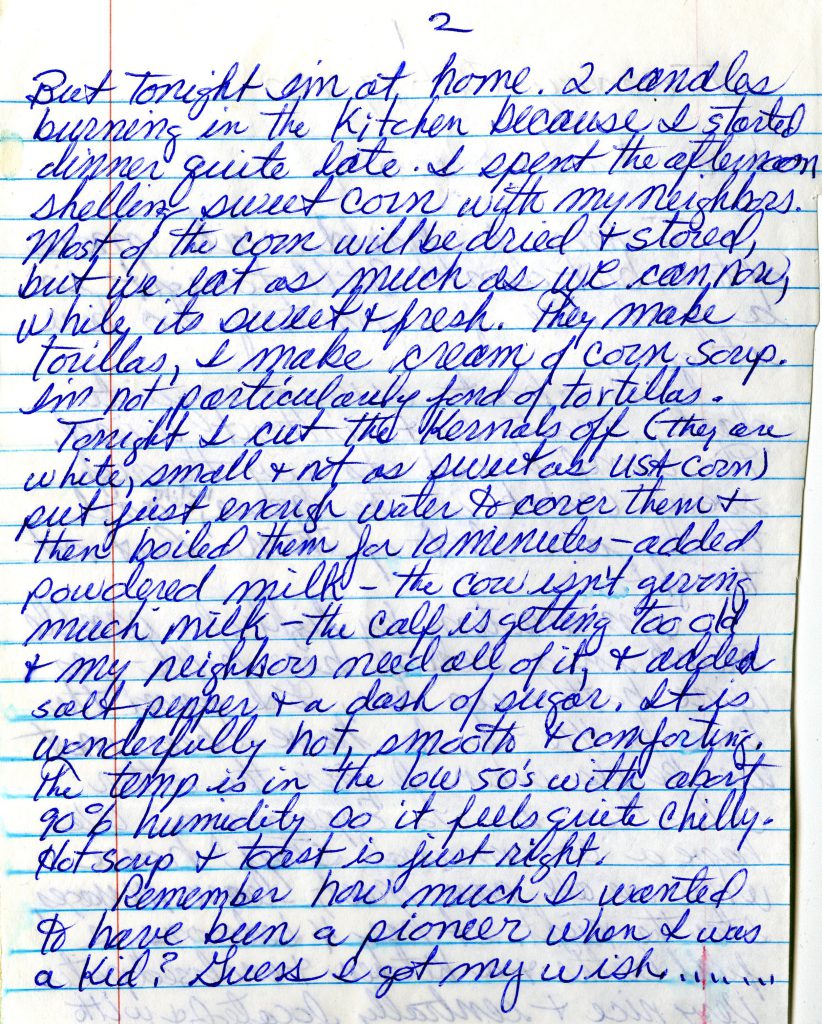 2
But Tonight I'm at home. 2 candles
burning in the Kitchen because I started
dinner quite late. I spent the afternoon
shelling sweet corn with my neighbors.
Most of the corn will be dried & stored,
but we eat as much as we can now,
while its sweet & fresh. They make
torillas, I make cream of corn soup.
I'm not particularly fond of tortillas.
Tonight I cut the Kernals off (they are
white, small & not as sweet as USA corn)
put just enough water to cover them &
then boiled them for 10 minutes - added
powdered milk - the cow isn't giving
much milk - the calf is getting too old
& my neighbors need all of it, & added
salt pepper & a dash of sugar. It is
wonderfully hot, smooth & comforting.
The temp is in the low 50's with abort
90% humidity so it feels quite chilly.
Hot soup & toast is just right.
Remember how much I wanted
to have been a pioneer when I was
a Kid? Guess I got my wish.......